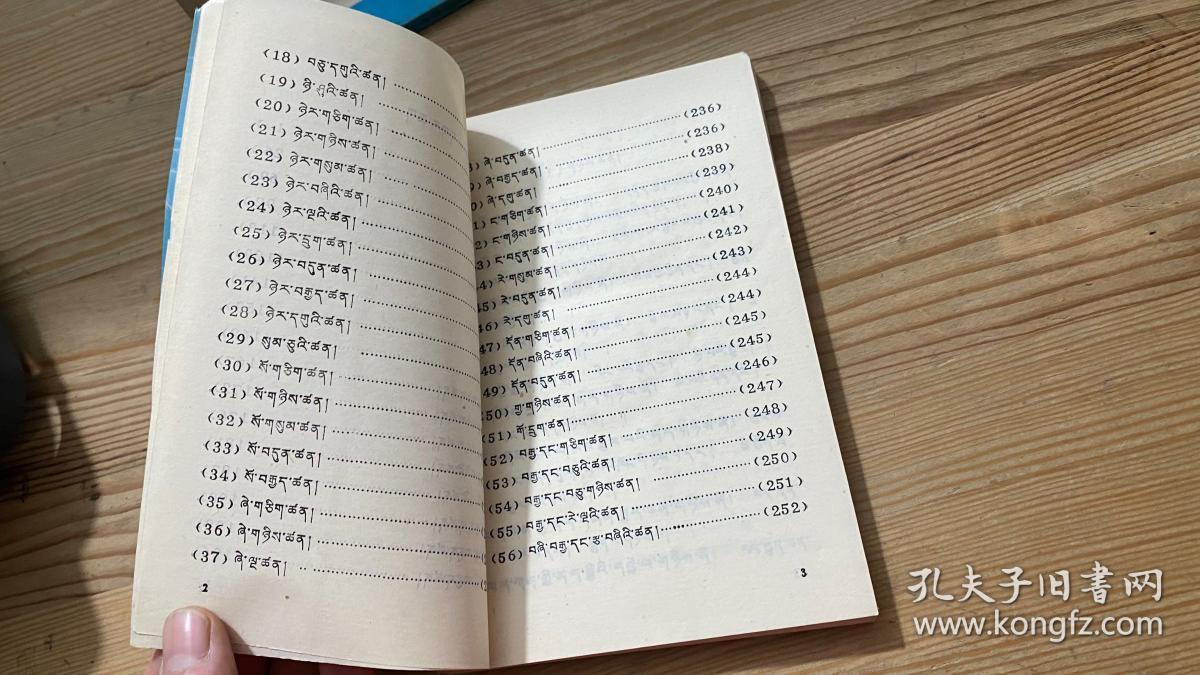 (18) བཅུ་དགུའི་ཚན། ··················
(19) ཉི་ཤུའི་ཚན། ··················
(20) ཉེར་གཅིག་ཚན། ··················
(21) ཉེར་གཉིས་ཚན། ··················
(22) ཉེར་གསུམ་ཚན། ··················
(23) ཉེར་བཞིའི་ཚན། ··················
(24) ཉེར་ལྔའི་ཚན། ··················
(25) ཉེར་དྲུག་ཚན། ··················
(26) ཉེར་བདུན་ཚན། ··················
(27) ཉེར་བརྒྱད་ཚན། ··················
(28) ཉེར་དགུའི་ཚན། ··················
(29) སུམ་ཅུའི་ཚན། ··················
(30) སོ་གཅིག་ཚན། ··················
(31) སོ་གཉིས་ཚན། ··················
(32) སོ་གསུམ་ཚན། ··················
(33) སོ་བདུན་ཚན། ··················
(34) སོ་བརྒྱད་ཚན། ··················
(35) ཞེ་གཅིག་ཚན། ··················
(36) ཞེ་གཉིས་ཚན། ··················
(37) ཞེ་ལྔ་ཚན། ··················
2
8) ཞེ་བདུན་ཚན། ··················(236)
9) ཞེ་བརྒྱད་ཚན། ··················(236)
0) ཞེ་དགུ་ཚན། ··················(238)
1) ང་གཅིག་ཚན། ··················(239)
2) ང་གཉིས་ཚན། ··················(240)
3) ང་བདུན་ཚན། ··················(241)
44) རེ་གསུམ་ཚན། ··················(242)
45) རེ་བདུན་ཚན། ··················(243)
46) རེ་དགུ་ཚན། ··················(244)
47) དོན་གཅིག་ཚན། ··················(244)
48) དོན་བཞིའི་ཚན། ··················(245)
49) དོན་བདུན་ཚན། ··················(245)
(50) གྱ་གཉིས་ཚན། ··················(246)
(51) གོ་དྲུག་ཚན། ··················(247)
(52) བརྒྱ་དང་གཅིག་ཚན། ··················(248)
(53) བརྒྱ་དང་བཅུའི་ཚན། ··················(249)
(54) བརྒྱ་དང་བཅུ་གཉིས་ཚན། ··················(250)
(55) བརྒྱ་དང་རེ་ལྔའི་ཚན། ··················(251)
(56) བཞི་བརྒྱ་དང་རྩ་བཞིའི་ཚན། ··················(252)
3
孔夫子旧书网
www.kongfz.com